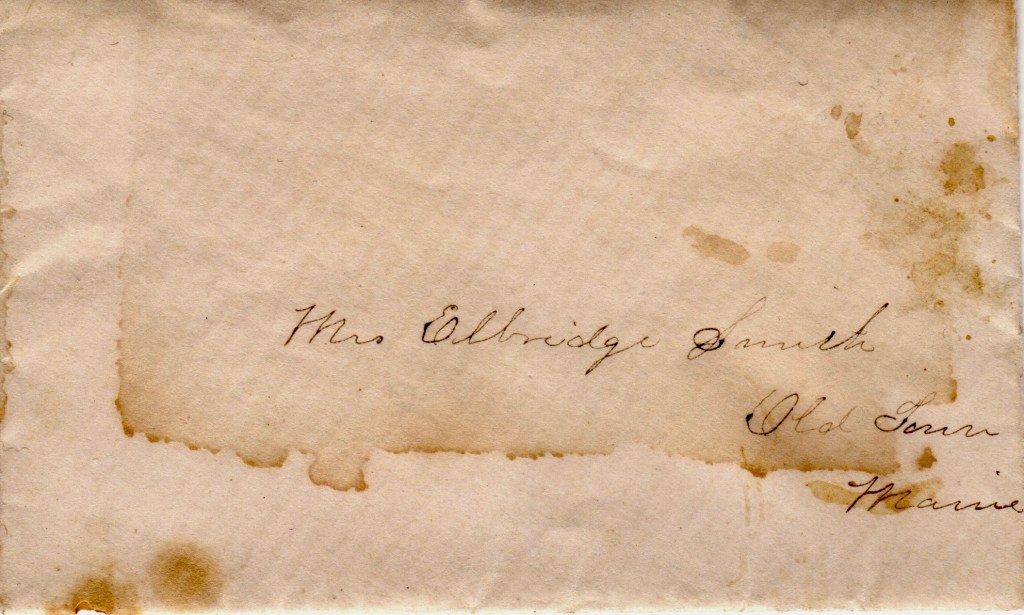 Mrs Elbridge Smith
Old Town
Maine